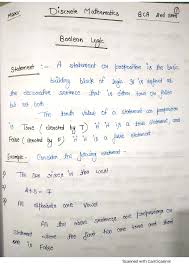 Discrete Mathematics BCA 2nd sem
Boolean Logic
Statement :- A statement or proposition is the basic
building block of logic. It is defined as
the declarative sentence that is either true or false
but not both.
The truth value of a statement or proposition
is True ( denoted by T ) if it is a true statement and
False ( denoted by F ) if it is a false statement
Example - Consider the following
① The Sun rises in the
② A+B = 7
③ All are Vowel.
All the above sentence are proposition or
statement where the first two are true and third
one is False
Scanned with CamScanner